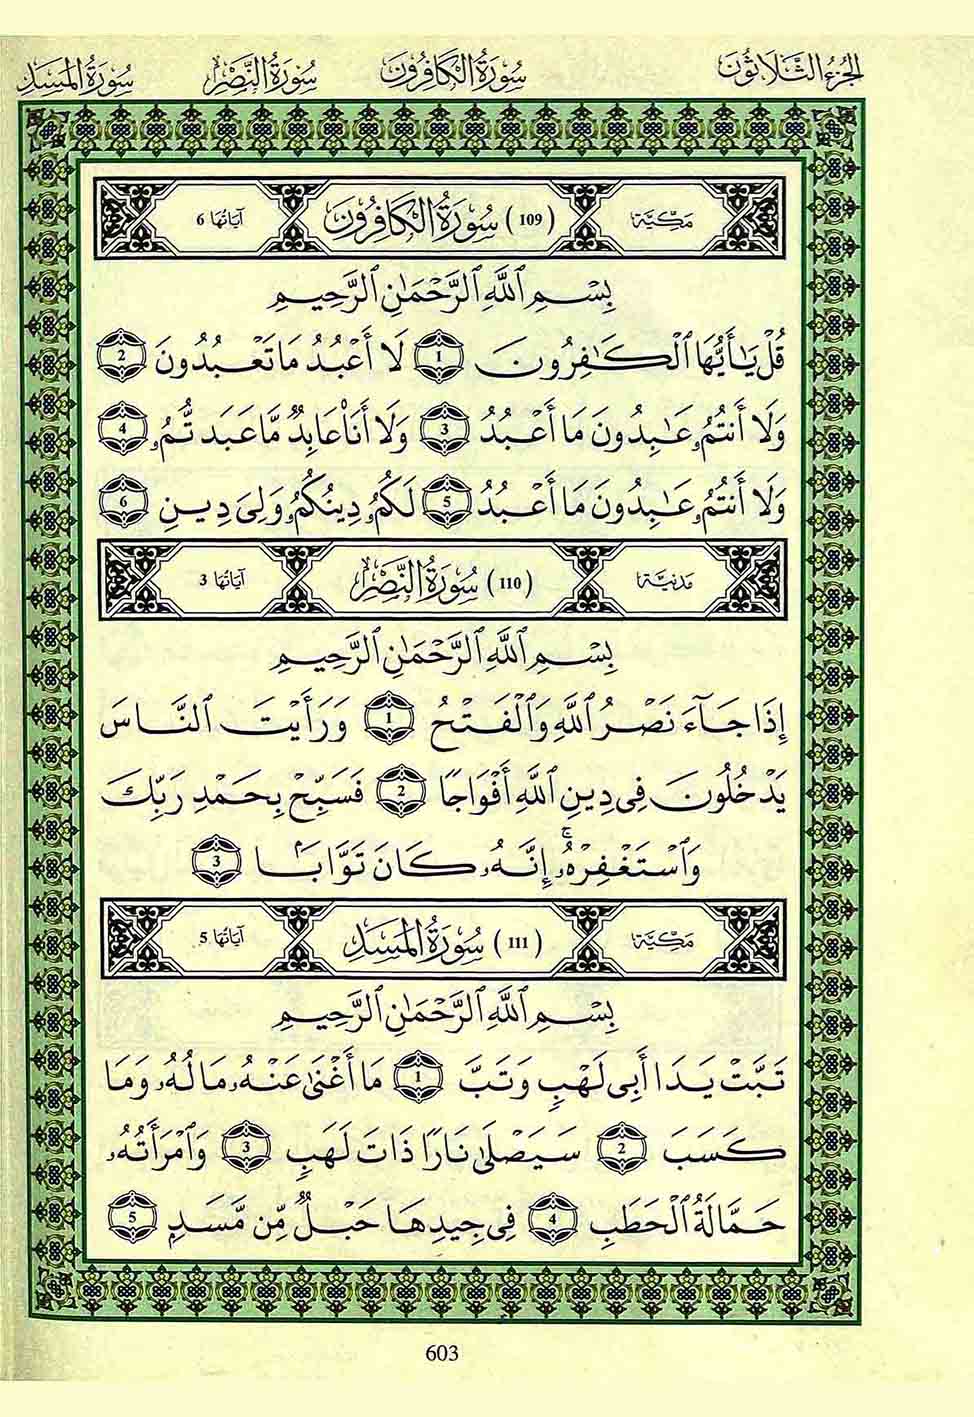 الجزء الثلاثون سورة الكافرون سورة النصر سورة المسد
مكية (109) سورة الكافرون آياتها 6
بِسْمِ ٱللَّهِ ٱلرَّحْمَٰنِ ٱلرَّحِيمِ
قُلْ يَٰٓأَيُّهَا ٱلْكَٰفِرُونَ 1 لَا أَعْبُدُ مَا تَعْبُدُونَ 2
وَلَا أَنتُمُۥ عَٰبِدُونَ مَا أَعْبُدُ 3 وَلَا أَنَا۠ عَابِدٌ مَّا عَبَدتُّمُۥ 4
وَلَا أَنتُمُۥ عَٰبِدُونَ مَا أَعْبُدُ 5 لَكُمُۥ دِينُكُمُۥ وَلِىَ دِينِ 6
مدنية (110) سورة النصر آياتها 3
بِسْمِ ٱللَّهِ ٱلرَّحْمَٰنِ ٱلرَّحِيمِ
إِذَا جَآءَ نَصْرُ ٱللَّهِ وَٱلْفَتْحُ 1 وَرَأَيْتَ ٱلنَّاسَ
يَدْخُلُونَ فِى دِينِ ٱللَّهِ أَفْوَاجًا 2 فَسَبِّحْ بِحَمْدِ رَبِّكَ
وَٱسْتَغْفِرْهُۥ ۚ إِنَّهُۥ كَانَ تَوَّابَۢا 3
مكية (111) سورة المسد آياتها 5
بِسْمِ ٱللَّهِ ٱلرَّحْمَٰنِ ٱلرَّحِيمِ
تَبَّتْ يَدَا أَبِى لَهْبٍ وَتَبَّ 1 مَا أَغْنَىٰ عَنْهُۥ مَالُهُۥ وَمَا
كَسَبَ 2 سَيَصْلَىٰ نَارًا ذَاتَ لَهَبٍ 3 وَٱمْرَأَتُهُۥ
حَمَّالَةُ ٱلْحَطَبِ 4 فِى جِيدِهَا حَبْلٌ مِّن مَّسَدٍ 5
603